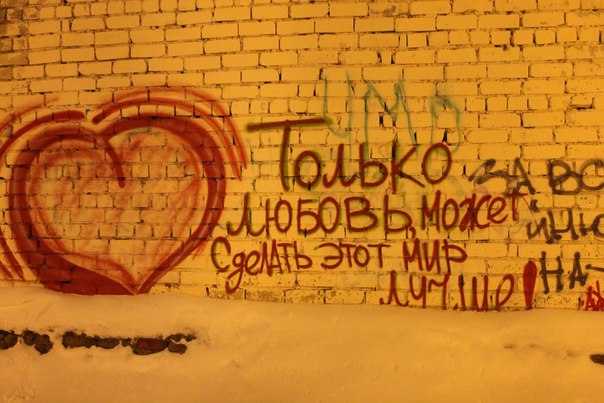 чмо
Только
любовь, может
сделать этот мир
лучше!
ЗА ВС
НА-